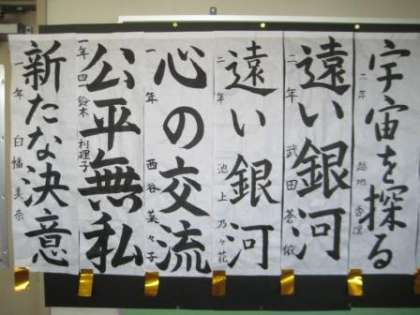 宇宙を探る
二年
遠い銀河
二年 武田
遠い銀河
二年 池上乃々花
心の交流
一年 西谷美々子
公平無私
一年四 鈴木利理子
新たな決意
一年 白幡美奈